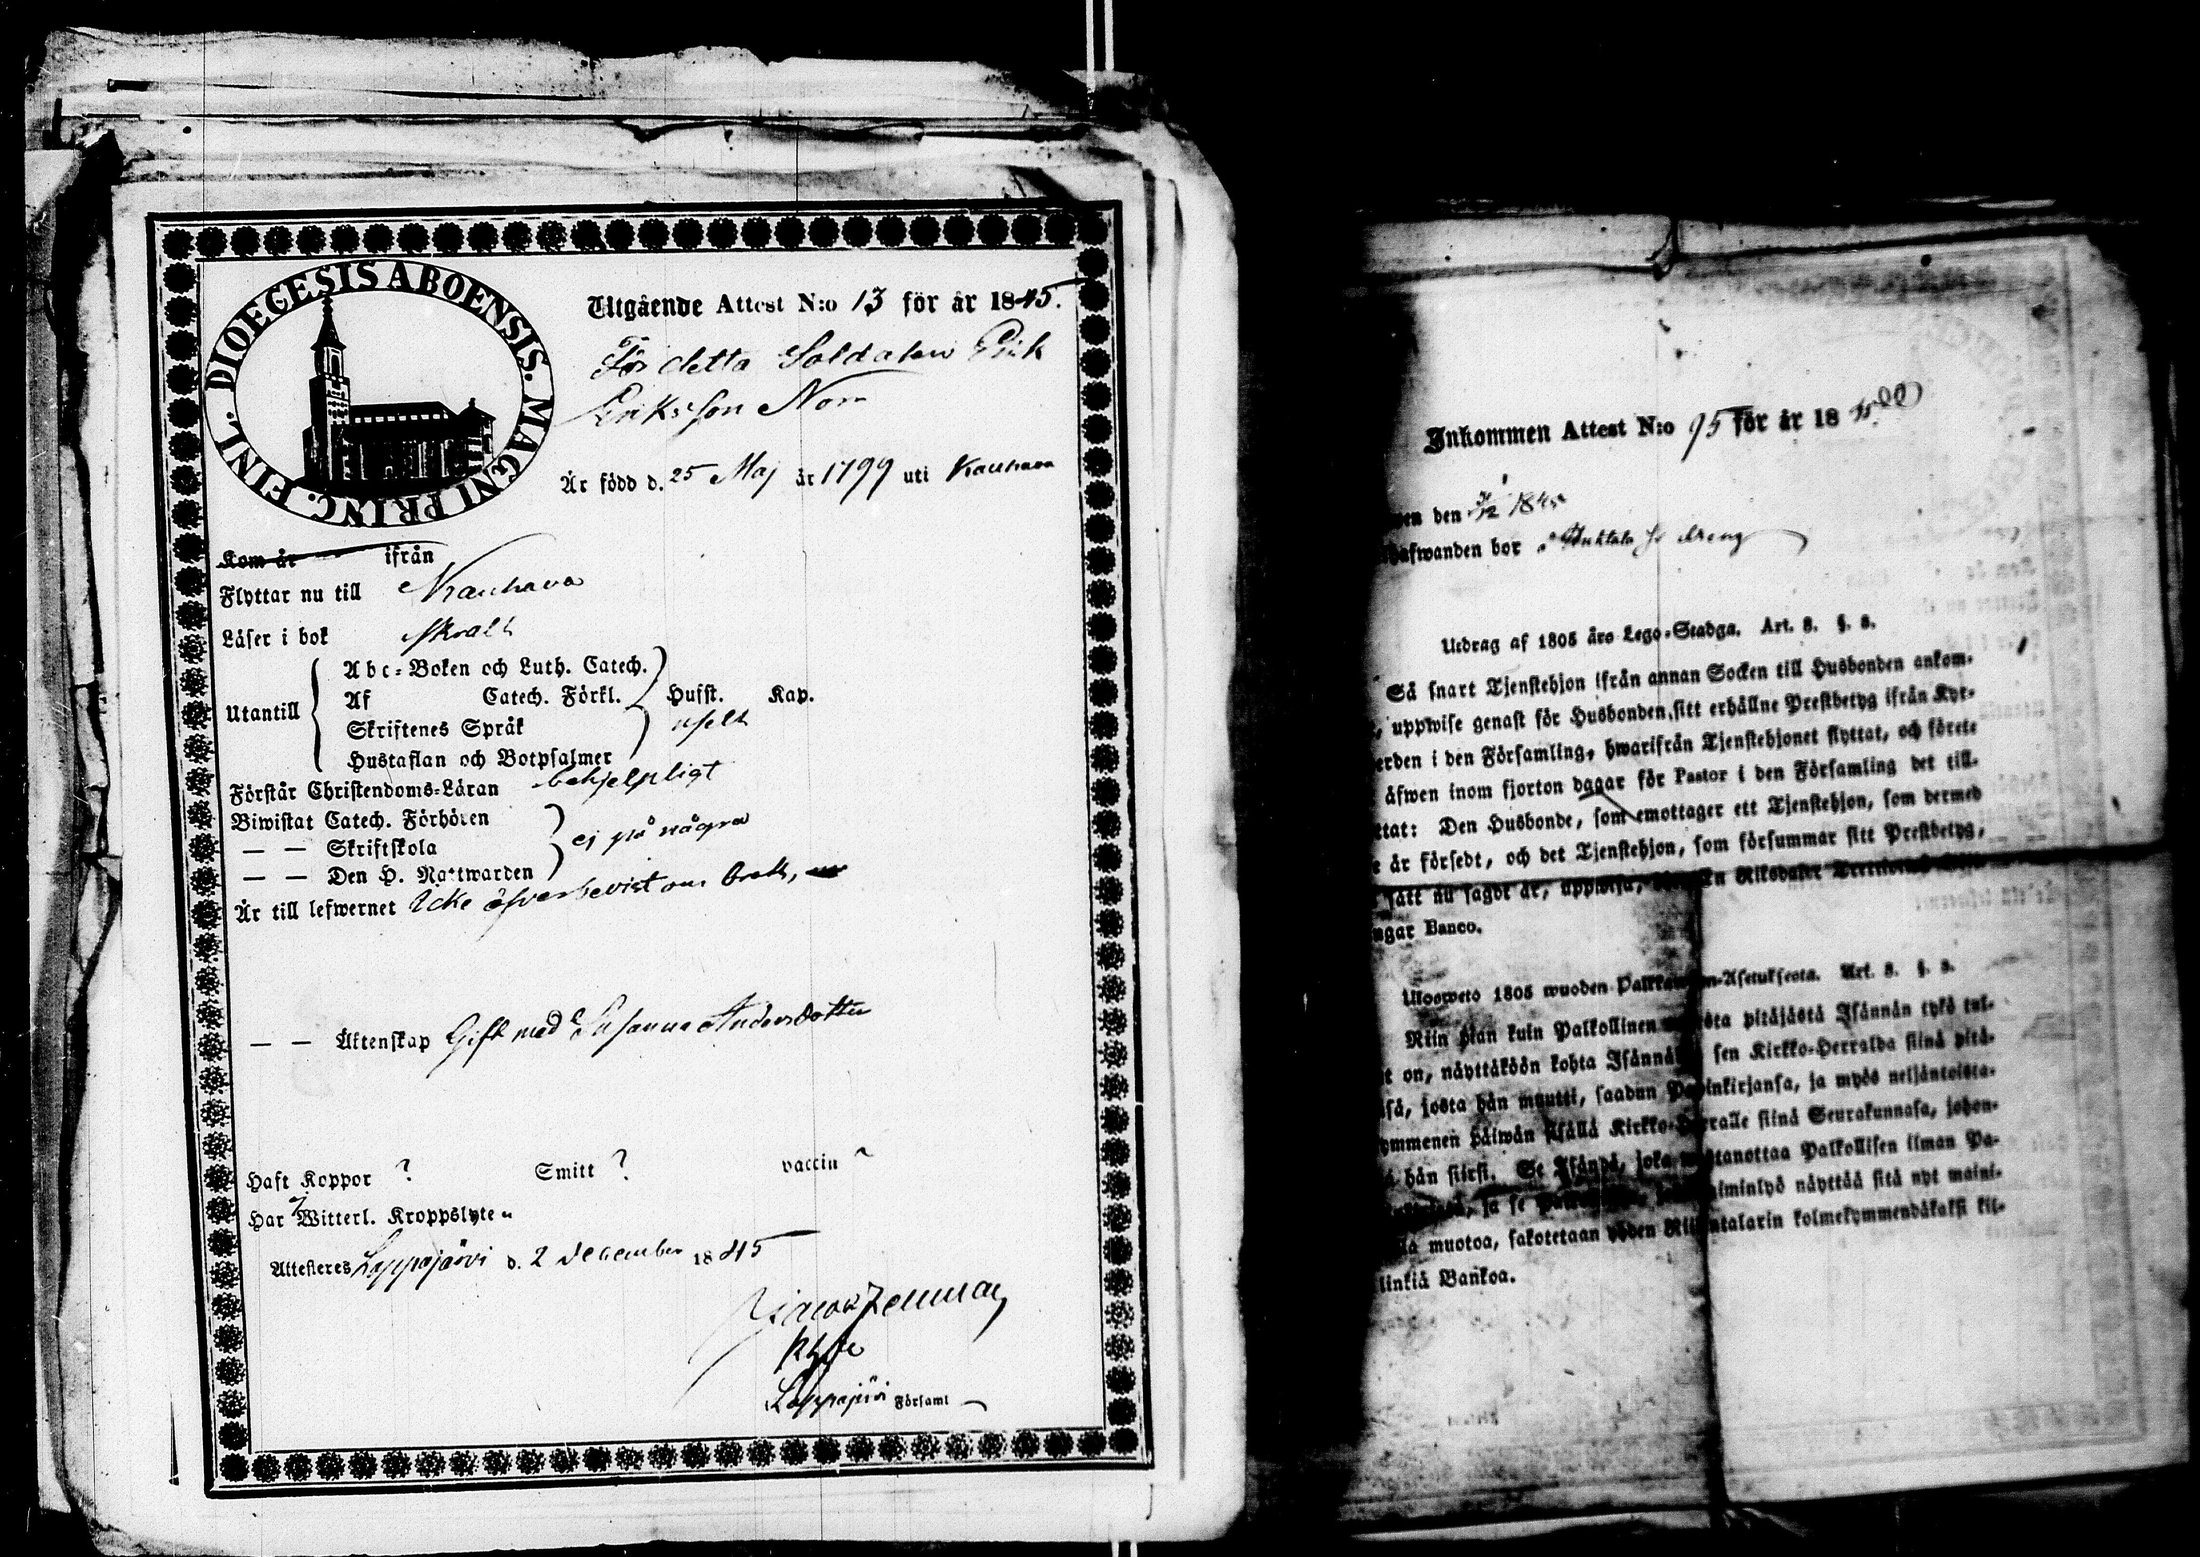 DIOECESIS ABOENSIS. MAGNI PRINC. FINL.
Utgående Attest N:o 13 för år 1845.
För detta Soldaten Erik
Eriksson Norr
Är född d. 25 Maj år 1799 uti Kauhava
Kom år ifrån
Flyttar nu till Kauhava
Läser i bok svalt
Abc-Boken och Luth. Catech.
Utantill Af Catech. Förkl. Husst. Kap.
Skriftenes Språk uselt
Hustaflan och Botpsalmer
Förstår Christendoms-Läran behjelpligt
Biwistat Catech. Förhören
— — Skriftskola ej på några
— — Den H. Nattwarden
Är till lefwernet Icke öfverbevist om brott,
— — Äktenskap Gift med Susanna Andersdotter
Haft Koppor ? Smitt ? vaccin
Har Witterl. Kroppslyte
Attesteres Lappajärvi d. 2 December 1845
Lappajärvi Församl
Inkommen Attest N:o 95 för år 18
den 1845
afwanden bor
Utdrag af 1805 års Lego-Stadga. Art. 8. §. 8.
Så snart Tjenstehjon ifrån annan Socken till Husbonden ankom-
uppwise genast för Husbonden sitt erhållne Prestbetyg ifrån Kyr-
erden i den Församling, hwarifrån Tjenstehjonet flyttat, och förete
äfwen inom fjorton dagar för Pastor i den Församling det till-
ttat: Den Husbonde, som emottager ett Tjenstehjon, som dermed
e är försedt, och det Tjenstehjon, som försummar sitt Prestbetyg,
sätt nu sagdt är, uppwisa, En Riksdaler
ngar Banco.
Ulosweto 1805 wuoden Palkka Asetuksesta. Art. 8. §. 8.
Niin pian kuin Palkollinen sta pitäjästä Isännän tykö tul-
t on, näyttäköön kohta Isännä sen Kirkko-Herralda siinä pitä-
sä, josta hän muutti, saadun Papinkirjansa, ja myös neljäntoista-
ymmenen päiwän sisällä Kirkko-Herralle siinä Seurakunnasa, johon-
hän siirsi. Se Isändä, joka wastanottaa Palkollisen ilman Pa-
ja se laiminlyö näyttää sitä nyt maini-
muotoa, sakotetaan yhden Riikintalarin kolmekymmendäkaksi kil-
linkiä Bankoa.